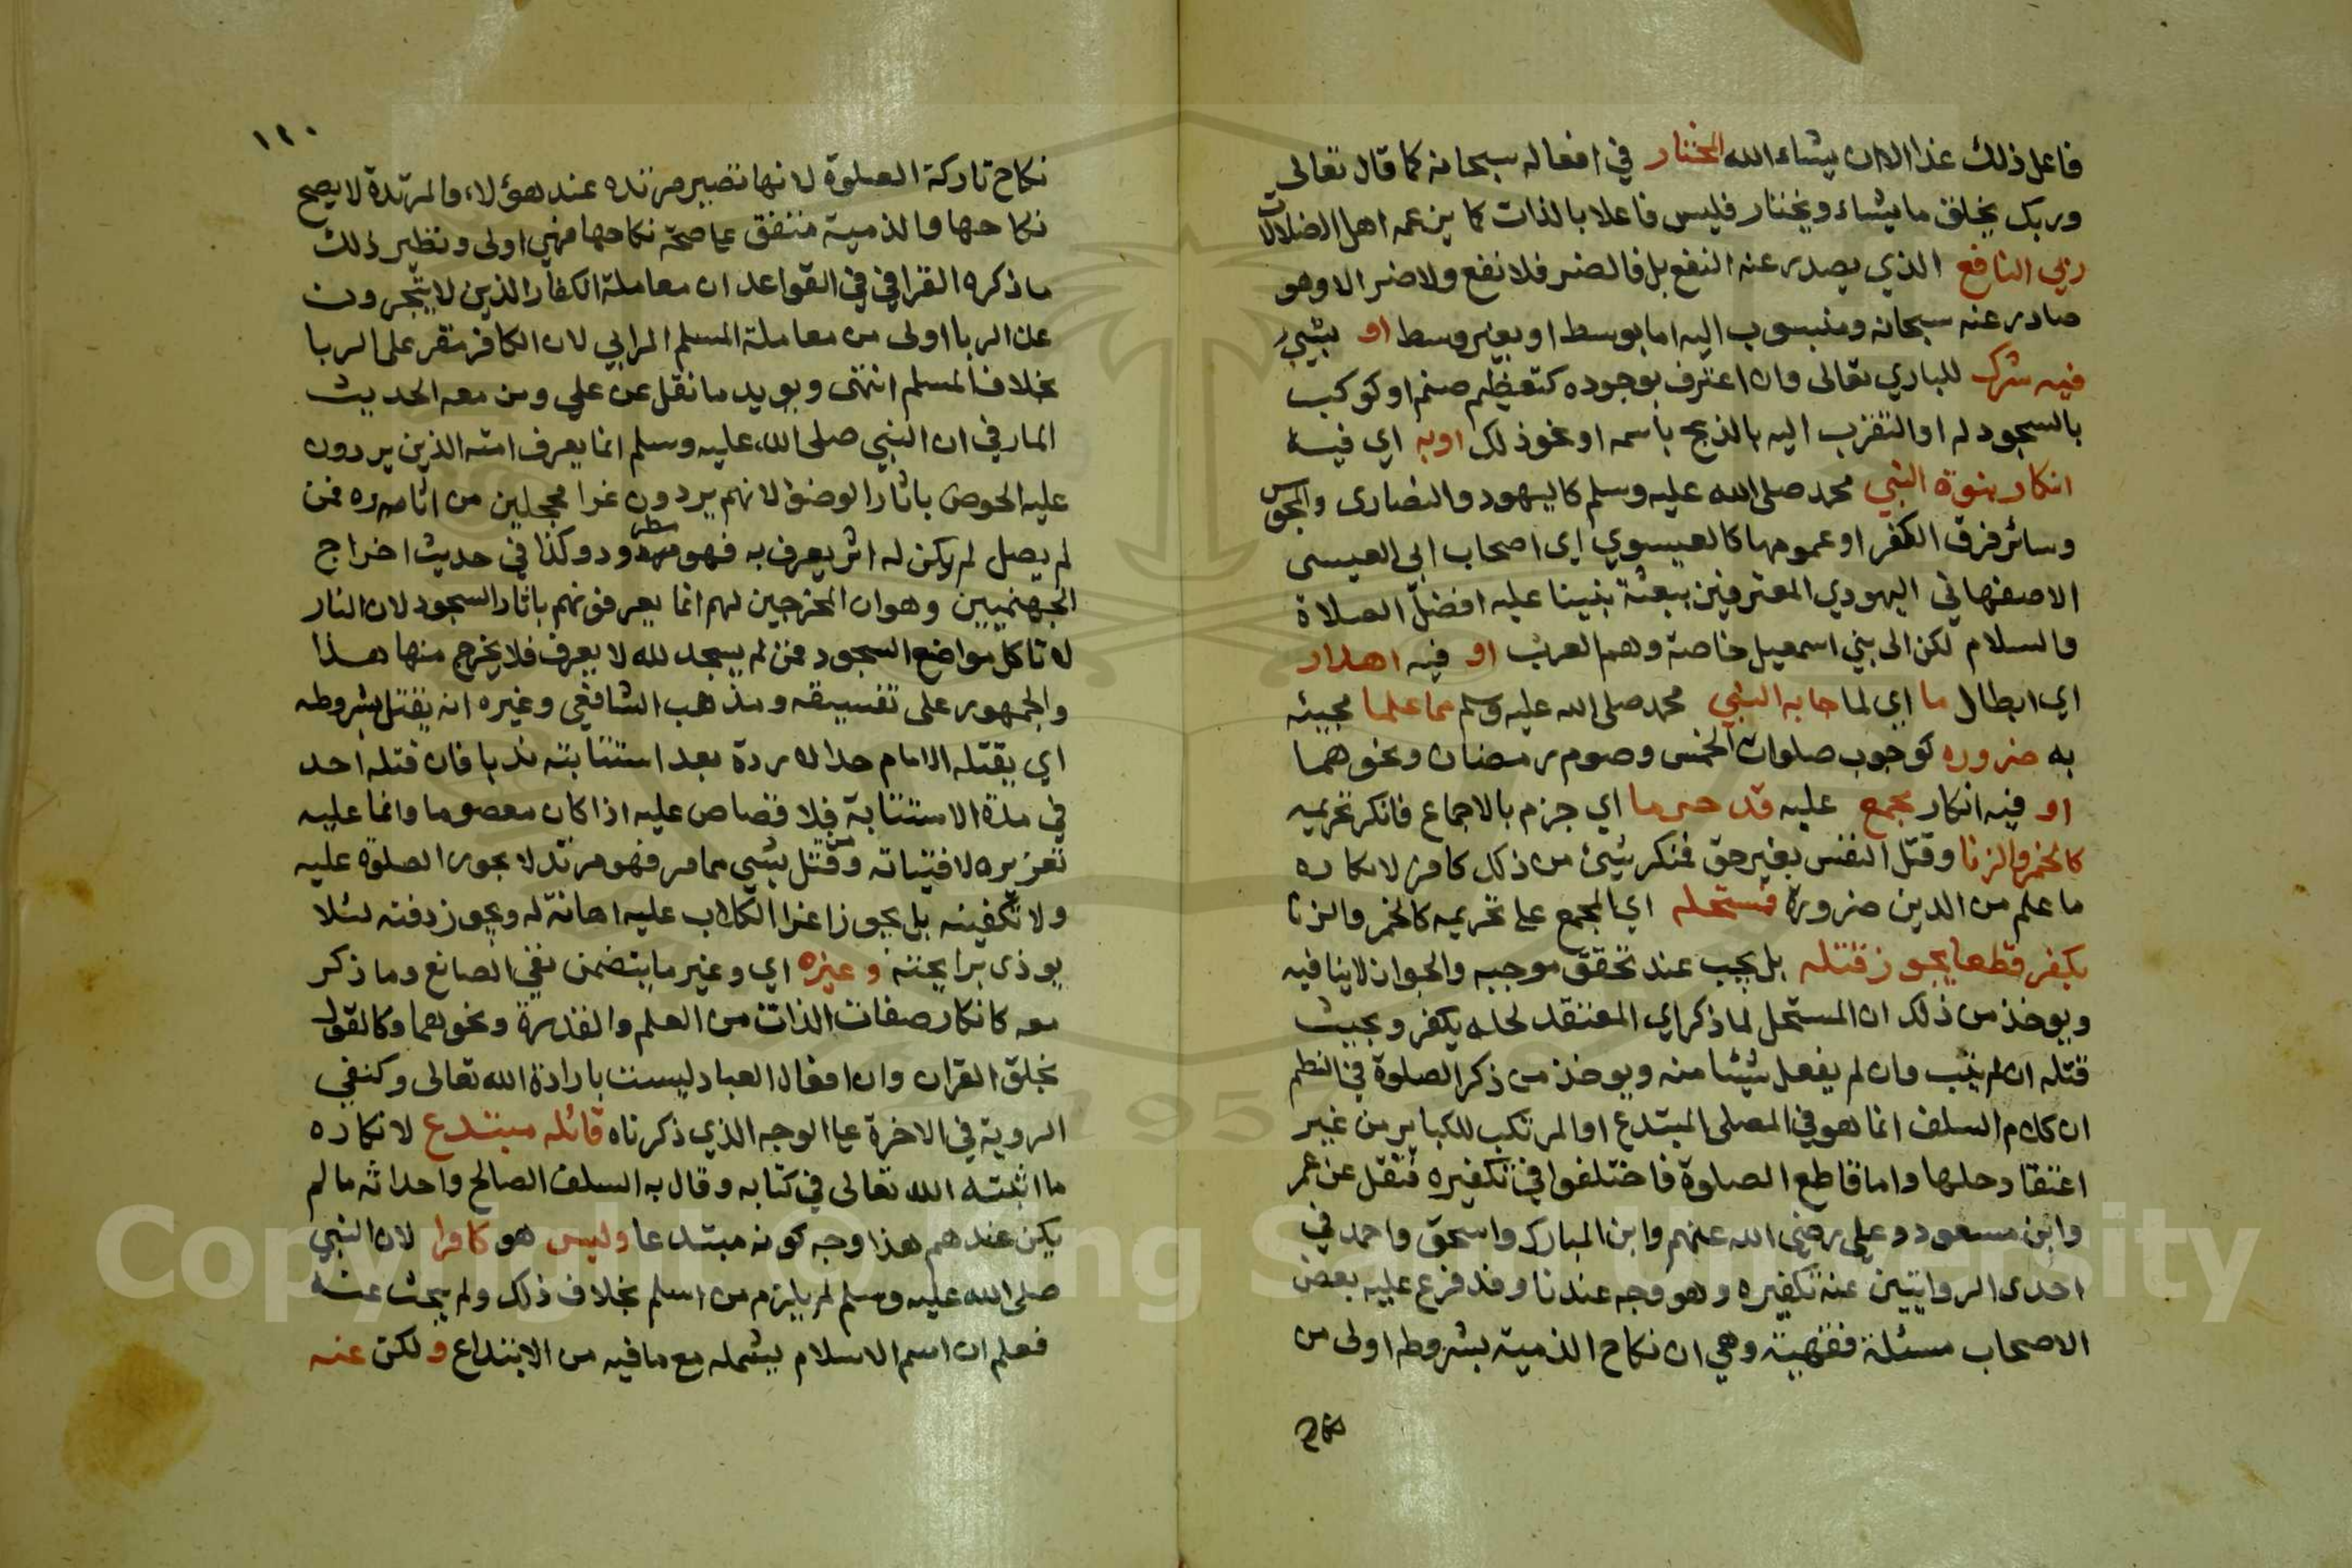 فاعل ذلك غذا الا ان يشاء الله المختار في افعاله سبحانه كما قال تعالى
وربك يخلق ما يشاء ويختار فليس فاعلا بالذات كما يزعمه اهل الضلالات
ربي النافع الذي يصدر عنه النفع بل فالضر فلا نفع ولا ضر الا وهو
صادر عنه سبحانه ومنسوب اليه اما بوسط او بغير وسط او بشيئ
فيه شرك للباري تعالى وان اعترف بوجوده كتعظيم صنم او كوكب
بالسجود له او التقرب اليه بالذبح باسمه او نحو ذلك او به اي فيه
انكار بنوة النبي محمد صلى الله عليه وسلم كاليهود والنصارى والمجوس
وسائر فرق الكفر او عمومها كالعيسوي اي اصحاب ابي العيسى
الاصفهاني اليهودي المعترفين ببعثة نبينا عليه افضل الصلاة
والسلام لكن الى بني اسمعيل خاصة وهم العرب او فيه اهدار
اي ابطال ما اي لما جا به النبي محمد صلى الله عليه وسلم مما علما مجيئه
به ضروره كوجوب صلوات الخمس وصوم رمضان ونحوهما
او فيه انكار مجمع عليه قد حرما اي جزم بالاجماع فانكر تحريمه
كالخمر والزنا وقتل النفس بغير حق فمنكر شيئ من ذلك كافر لانكاره
ما علم من الدين ضرورة فمستحله اي المجمع على تحريمه كالخمر والزنا
يكفر قطعا يجوز قتله بل يجب عند تحقق موجبه والجواز لا ينافيه
ويوخذ من ذلك ان المستحل لما ذكر اي المعتقد لحله يكفر ويجب
قتله ان لم يتب وان لم يفعل شيئا منه ويوخذ من ذكر الصلوة في النظم
ان كلام السلف انما هو في المصلى المبتدع او المرتكب للكباير من غير
اعتقاد حلها واما قاطع الصلوة فاختلفوا في تكفيره فنقل عن عمر
وابن مسعود وعلي رضي الله عنهم وابن المبارك واسحق واحمد في
احدى الروايتين عنه تكفيره وهو وجه عندنا وقد فرع عليه بعض
الاصحاب مسئلة فقهية وهي ان نكاح الذمية بشروطه اولى من
نكاح
١٢٠
نكاح تاركة الصلوة لانها تصير مرتده عند هؤلاء والمرتدة لا يصح
نكاحها والذمية متفق على صحة نكاحها فهي اولى ونظير ذلك
ما ذكره القرافي في القواعد ان معاملة الكفار الذين لا يتجرون
عن الربا اولى من معاملة المسلم المرابي لان الكافر مقر على الربا
بخلاف المسلم انتهى ويويد ما نقل عن علي ومن معه الحديث
المار في ان النبي صلى الله عليه وسلم انما يعرف امته الذين يردون
عليه الحوض باثار الوضؤ لانهم يردون غرا محجلين من اثاره فمن
لم يصل لم يكن له اثر يعرف به فهو مطرود وكذا في حديث اخراج
الجهنميين وهو ان المخرجين لهم انما يعرفونهم باثار السجود لان النار
لا تاكل مواضع السجود فمن لم يسجد لله لا يعرف فلا يخرج منها هذا
والجمهور على تفسيقه ومذهب الشافعي وغيره انه يقتل بشروطه
اي يقتله الامام حدا لا ردة بعد استتابته ندبا فان قتله احد
في مدة الاستتابة فلا قصاص عليه اذا كان معصوما وانما عليه
تعزيره لافتياته ومن قتل بشيئ مما مر فهو مرتد لا يجوز الصلوة عليه
ولا تكفينه بل يجوز اغراء الكلاب عليه اهانة له ويجوز دفنه لئلا
يوذى برايحته وغيره اي وغير ما يتضمن نفي الصانع وما ذكر
معه كانكار صفات الذات من العلم والقدرة ونحوهما وكالقول
بخلق القران وان افعال العباد ليست بارادة الله تعالى وكنفي
الروية في الاخرة على الوجه الذي ذكرناه قائله مبتدع لانكاره
ما اثبته الله تعالى في كتابه وقال به السلف الصالح واحداثه ما لم
يكن عندهم هذا وجه كونه مبتدعا وليس هو كافرا لان النبي
صلى الله عليه وسلم لم يلزم من اسلم بخلاف ذلك ولم يبحث عنه
فعلم ان اسم الاسلام يشمله مع ما فيه من الابتداع ولكن عنه
Copyright © King Saud University
1957